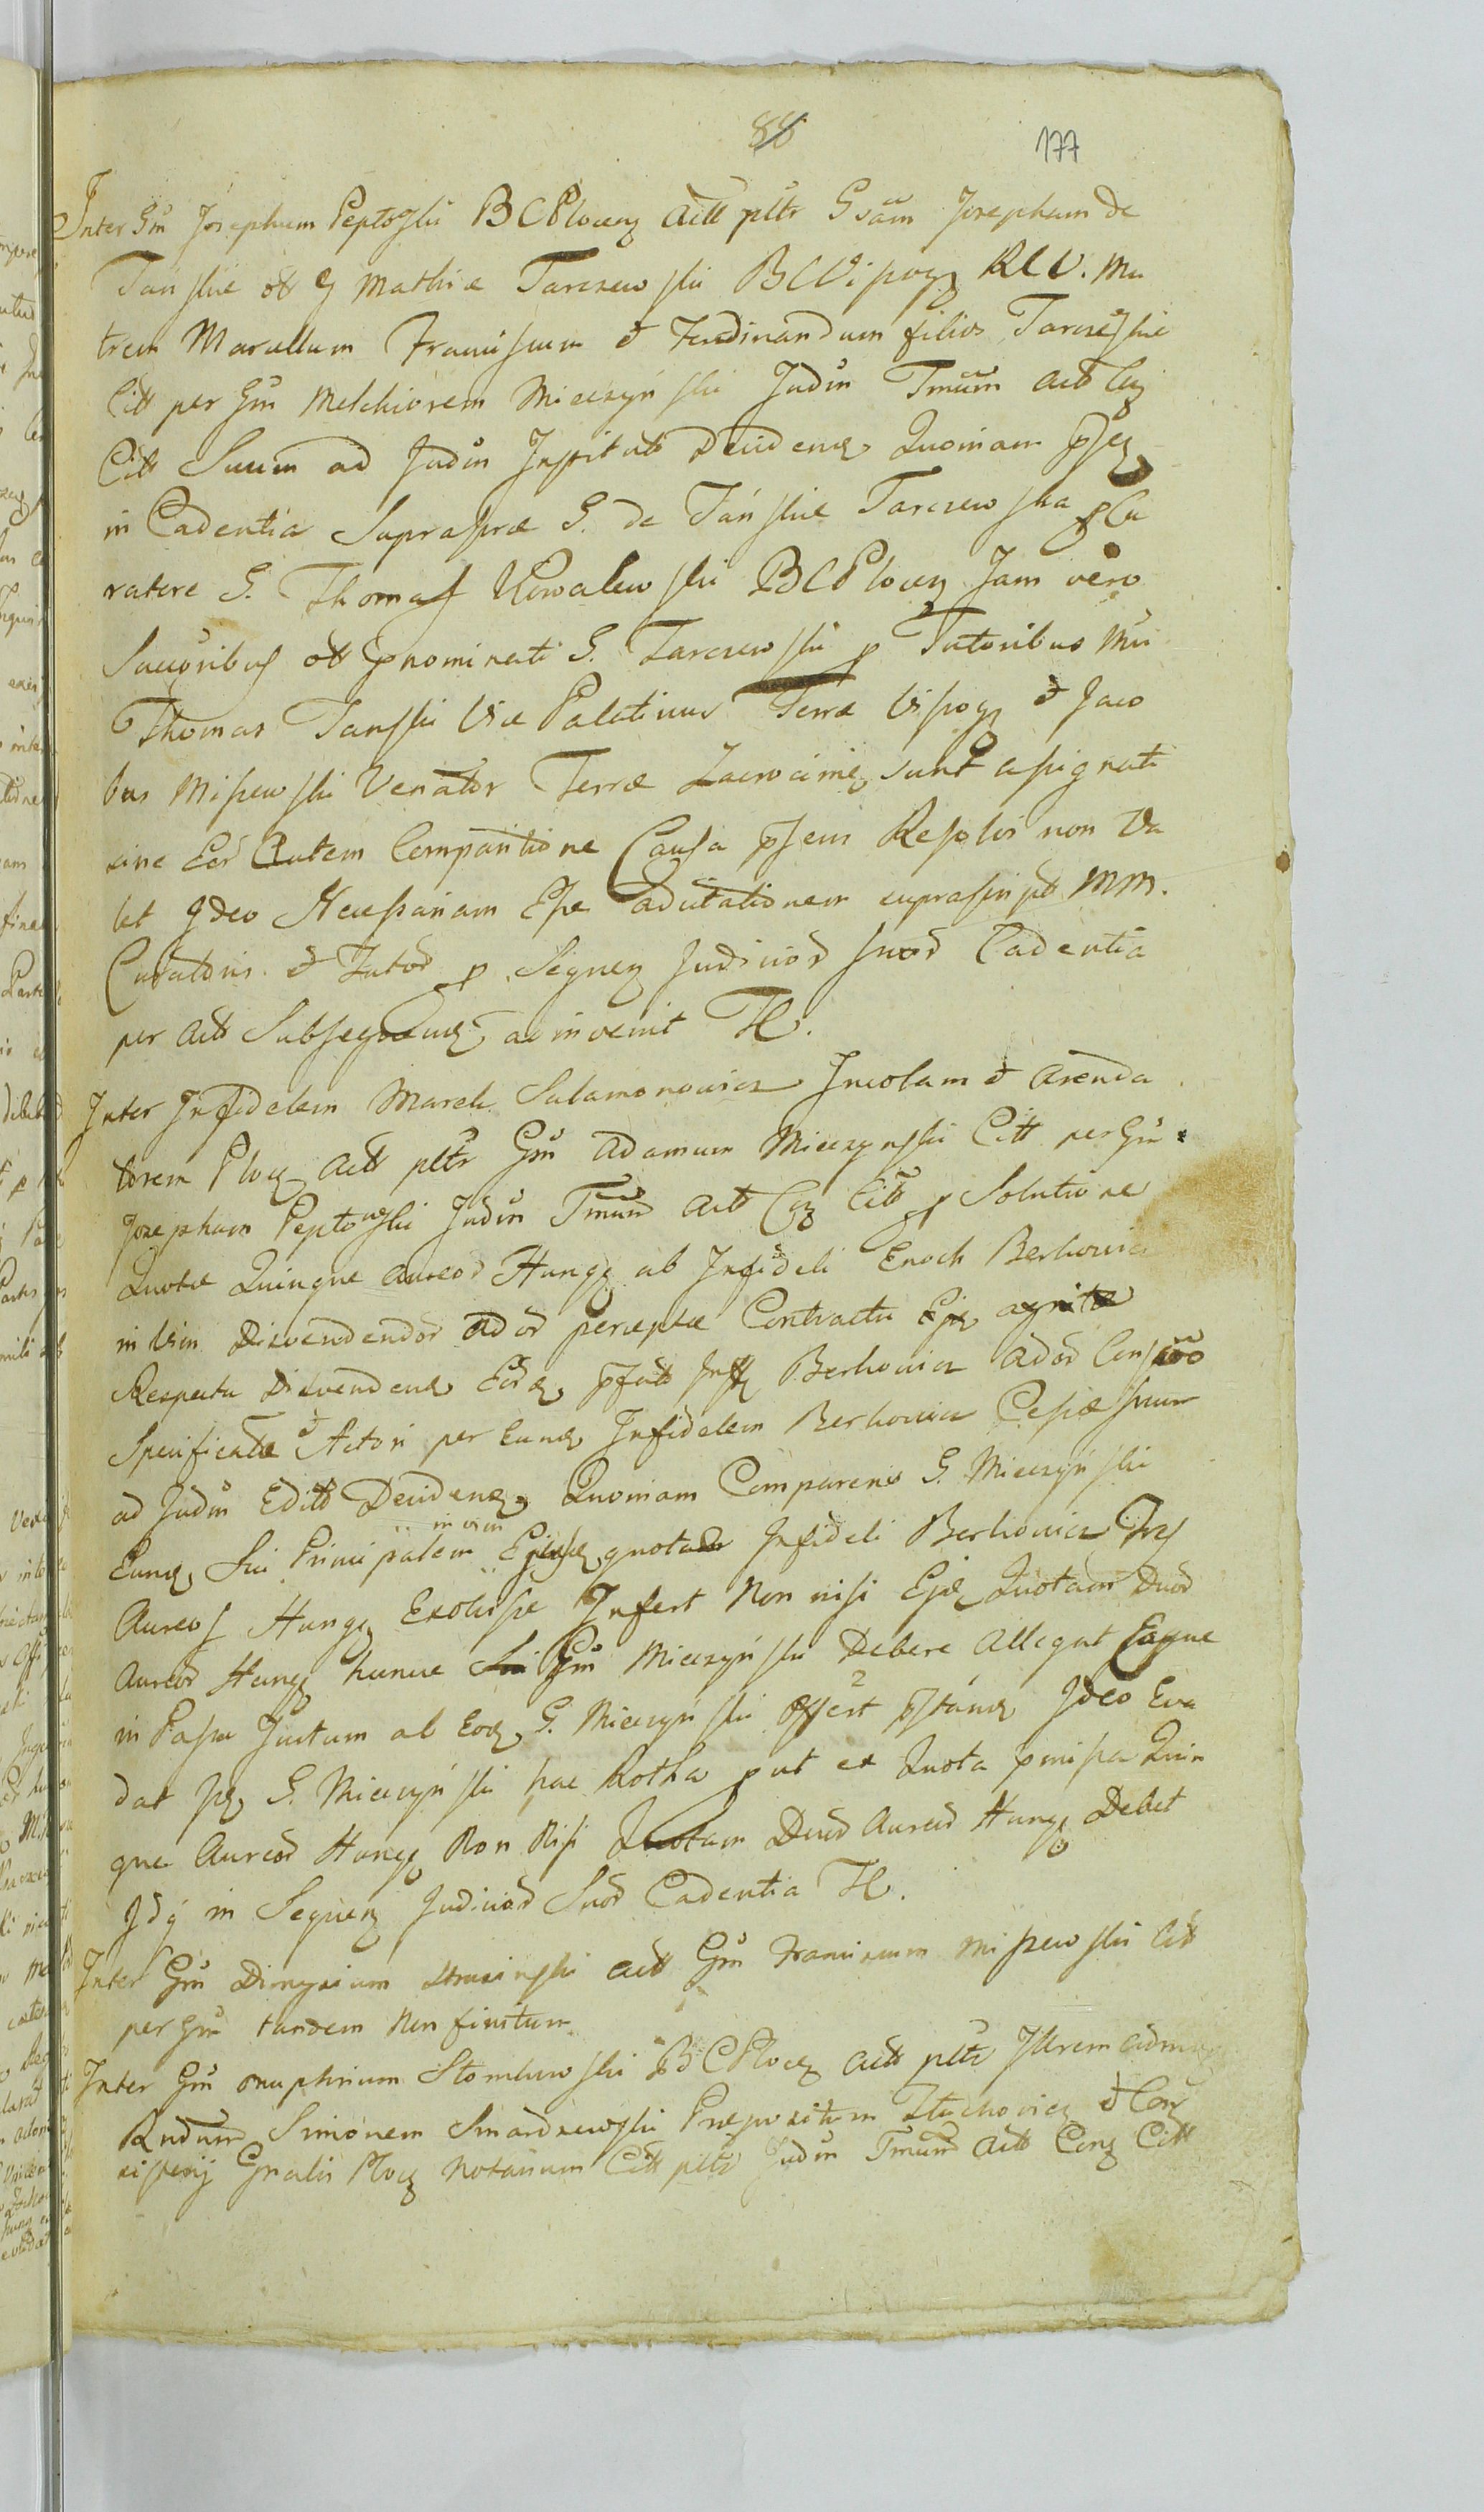 88 177
Inter Gm Josephum Peptowski BCPlocen Actt pltr Gsam Josepham de
Tańskie ott G Mathiæ Tarczewski BCWisog RLV. Ma
trem Marcellum Franciscum et Ferdinandum filios Tarczewskie
Citt per Gm Melchiorem Mieczyński Judm Tmum Actt
Citt Suum ad Judm Instituti Decidendo Quoniam
in Cadentia Suprascræ G. de Tańskie Tarczewska p Cu
ratore G. Thomas Kowalewski BCPlocen Jam vero
Succoribus ott pnominati G. Tarczewski p Tutoribus Mci
Thomas Tanski Vice Palatinus Terræ Visog et Jaco
bus Miszewski Venator Terræ Zacrocimen sunt assignati
sine Eor Autem Comparitione Causa Resolvi non Va
let Ideo Necessariam Esse adcitationem suprascript MM.
Curatoris et Tutor p Sequen Judicior suor Cadentia
per Actt Subsequendo adinvenit
Inter Infidelem Marek Salamonowicz Incolam et Arenda
torem Plocen Actt pltr Gm Adamum Mieczynski Citt per Gm
Josephum Peptowski Judm Tmum Actt Citt p Solutione
Quotæ Quinque aureor Hung ab Infideli Enoch Berkowicz
in vim Disvendendor ador perceptæ Contractu agnitæ
Respectu Disvenden pfatt Berkowicz
Specificatæ et Actori per Eund Infidelem Berkowicz Cessæ suum
ad Judm Editt Decidendo Quoniam Comparens G. Mieczyński
Eund Sui Principalem in vim quotæ Infideli Berkowicz Tres
Aureos Hung Exolvisse Infert Non nisi Quotam Duor
Aureor Hung hunce Gm Mieczyński Debere Allegat Eaque
in Passu Juctum ab Eod G. Mieczyński offert pstand Ideo Eva
dat G. Mieczyński hac Rotha put ex Quota pmissa Quin
que Aureor Hung Non Nisi Quotam Duor Aureor Hung Debet
Idq in Sequen Judicior Suor Cadentia
Inter Gm Dionysium actt Gm Franciscum Miszewski Citt
per Gm tandem Non finitum
Inter Gm onuphrium BCPlocen Actt pltr Illrem admm
Rndum Simonem Smardzewski Præpositum et Con
sistorij Gnalis Plocen Notarium Citt pltr Judm Tmum Actt Citt